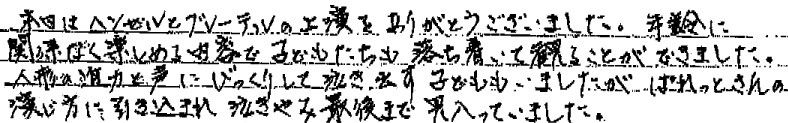 本日はヘンゼルとグレーテルの上演をありがとうございました。年齢に
関係なく楽しめる内容で子どもたちも落ち着いて観ることができました。
人形の迫力と声にびっくりして泣き出す子どももいましたが ぱれっとさんの
演じ方に引き込まれ 泣きやみ最後まで見入っていました。